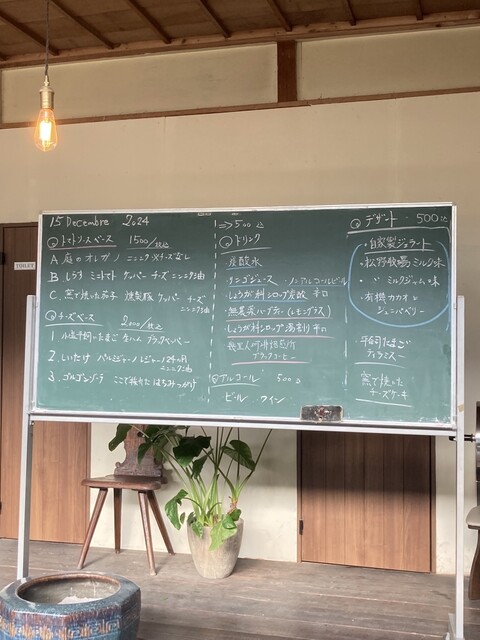 TOILET
15 Decembre 2024
トマトソースベース 1500/税込
A. 庭のオレガノ ニンニク ※チーズなし
B しらす ミニトマト ケッパー チーズ ニンニク油
C. 窯で焼いた茄子 燻製豚 ケッパー チーズ
チーズベース 2000/税込
1. 小塩平飼いたまご 生ハム ブラックペッパー
2. しいたけ パルミジャーノレジャーノ24ヶ月
ニンニク油
3. ゴルゴンゾーラ ここで採れたはちみつがけ
⇒500 込
ドリンク
炭酸水
リンゴジュース ・ノンアルコールビール
しょうが料シロップ炭酸 辛口
無農薬ハーブティー(レモングラス)
しょうが料シロップ湯割り 辛口
焙煎所
ブラックコーヒー
アルコール 500 込
ビール ワイン
デザート 500込
・自家製ジェラート
・松野牧場ミルク味
・〃 ミルクジャム味
・有機カカオと
ジュニパベリー
・平飼たまご
ティラミス
・窯で焼いた
チーズケーキ